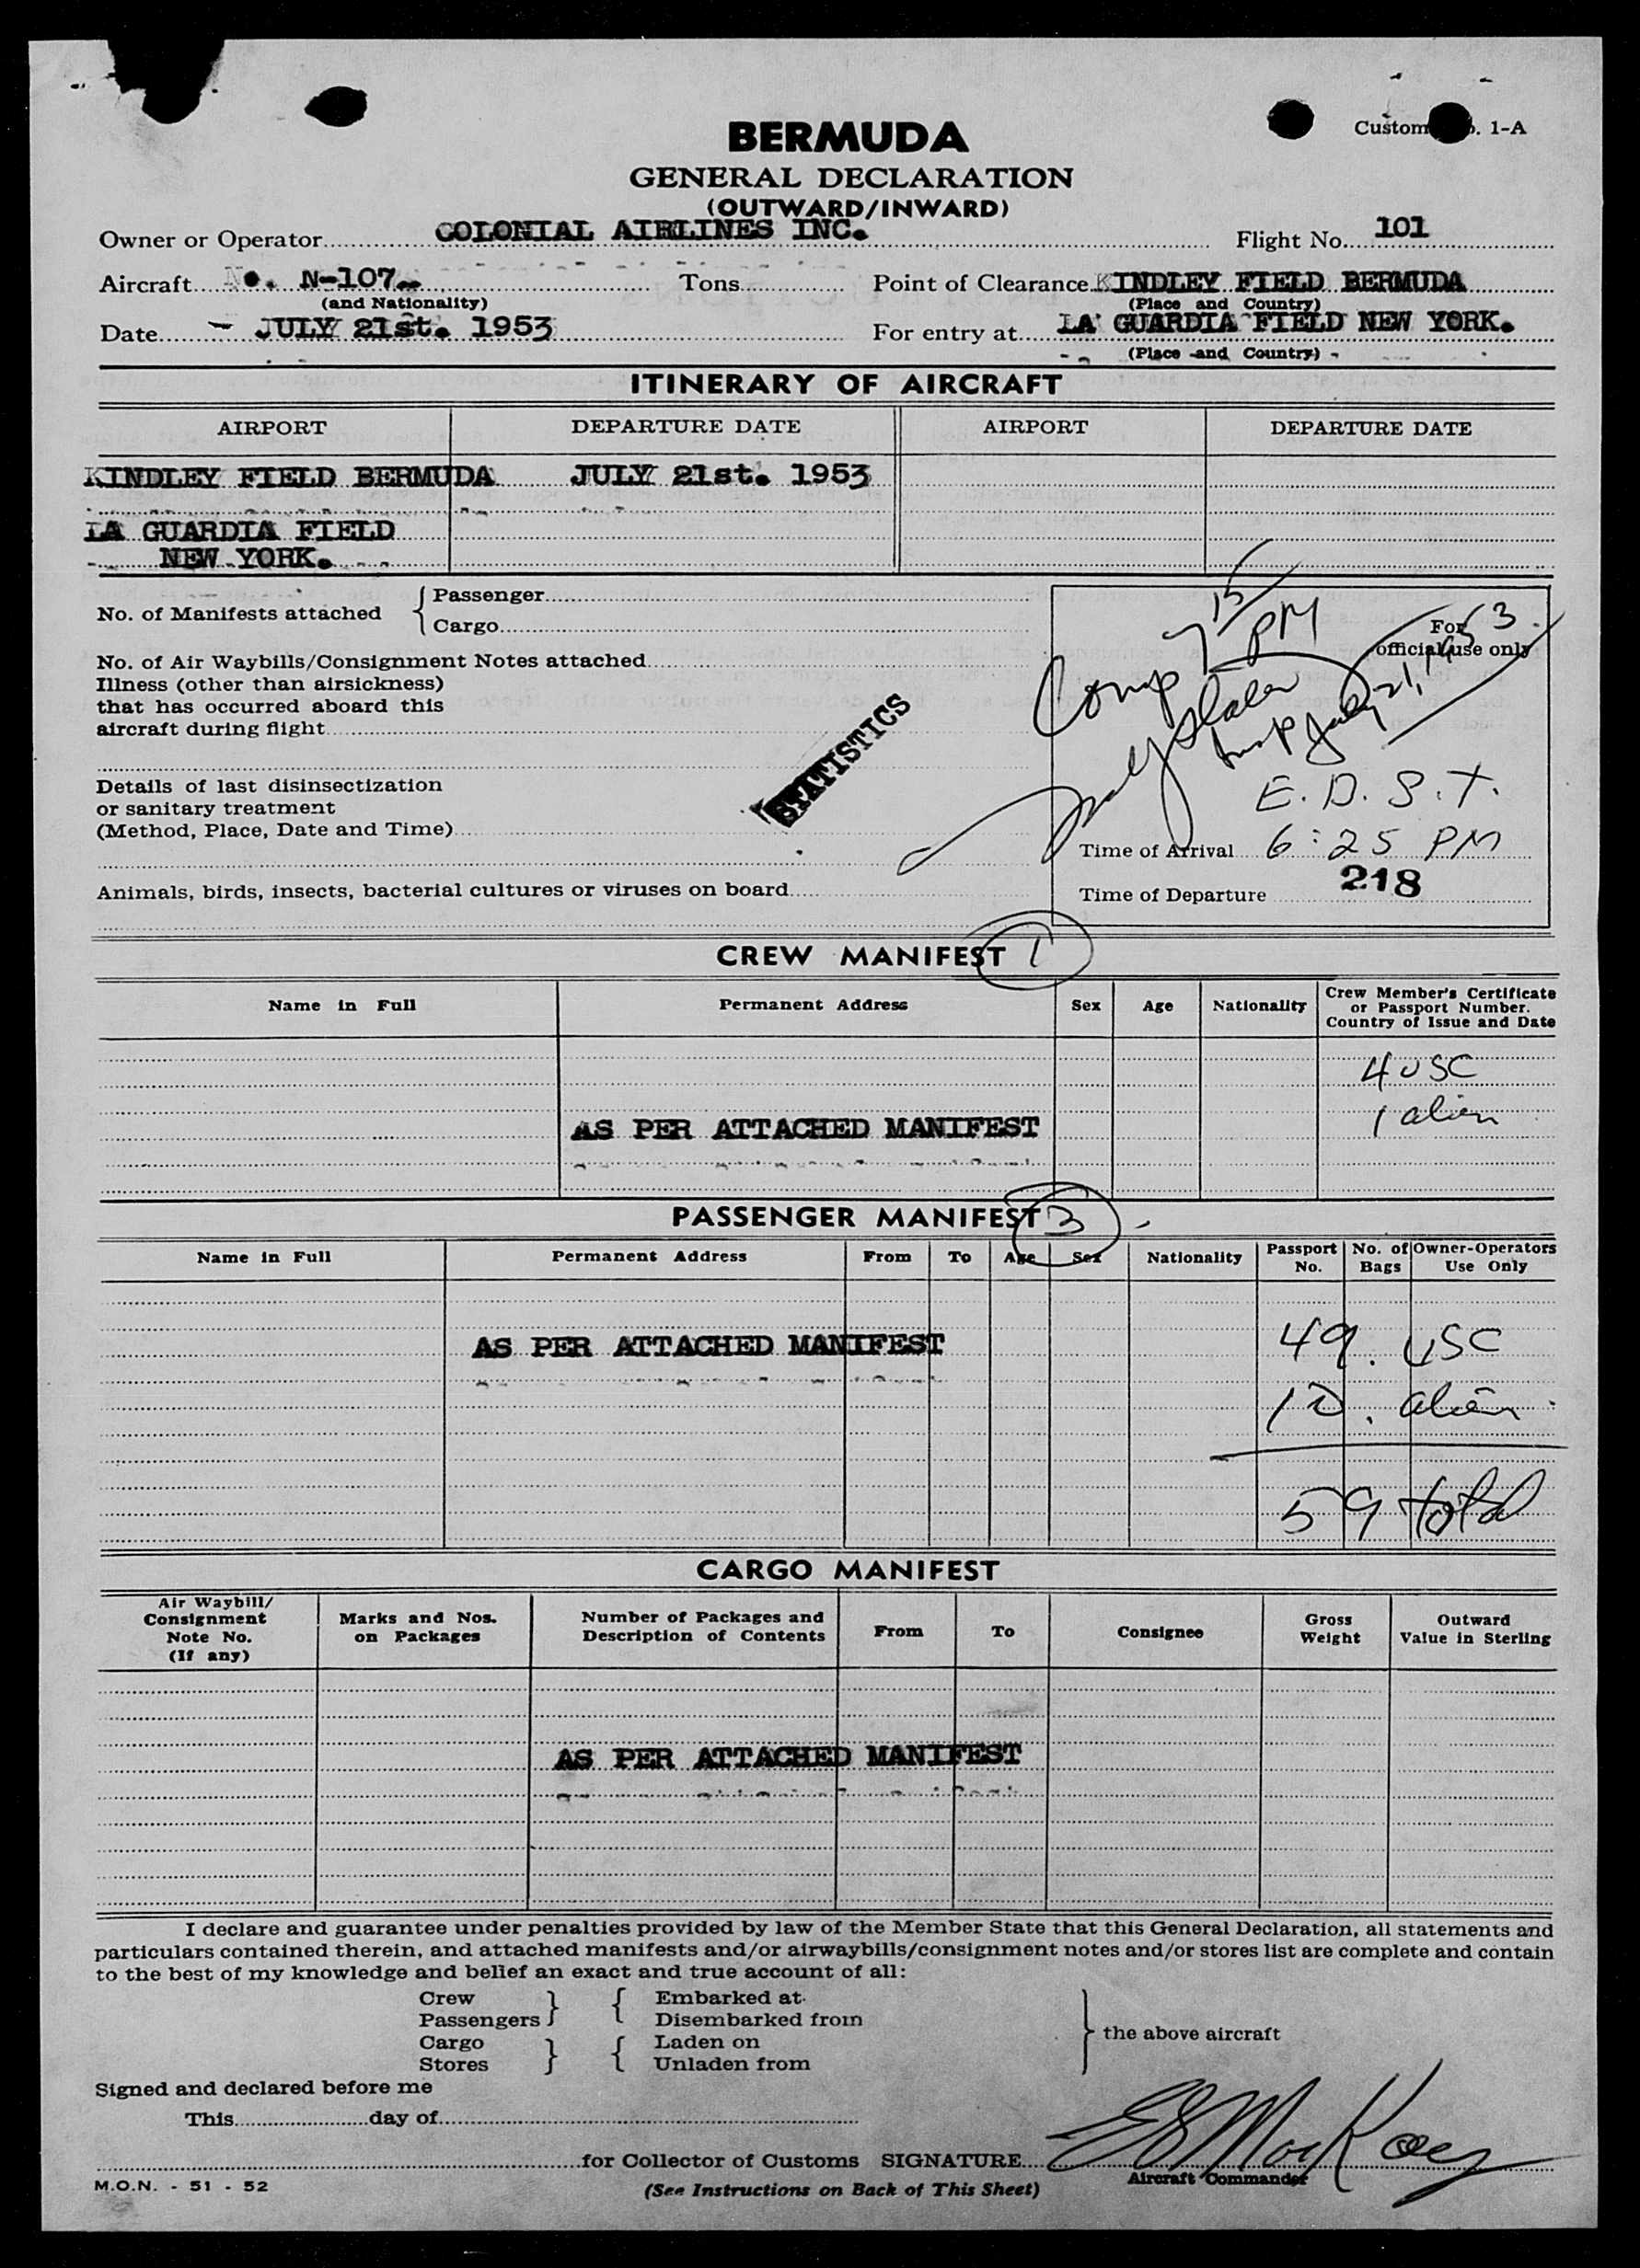 Custom . 1-A
BERMUDA
GENERAL DECLARATION
(OUTWARD/INWARD)
Owner or Operator COLONIAL AIRLINES INC. Flight No. 101
Aircraft No. N-107 Tons Point of Clearance KINDLEY FIELD BERMUDA
(and Nationality) (Place and Country)
Date JULY 21st. 1953 For entry at LA GUARDIA FIELD NEW YORK.
(Place and Country)
ITINERARY OF AIRCRAFT
AIRPORT DEPARTURE DATE AIRPORT DEPARTURE DATE
KINDLEY FIELD BERMUDA JULY 21st. 1953
LA GUARDIA FIELD
NEW YORK.
No. of Manifests attached { Passenger
Cargo
No. of Air Waybills/Consignment Notes attached
Illness (other than airsickness)
that has occurred aboard this
aircraft during flight
Details of last disinsectization
or sanitary treatment
(Method, Place, Date and Time)
Animals, birds, insects, bacterial cultures or viruses on board
STATISTICS
For
official use only
Comp 7 15 PM
Insp July 21, 1953
E.D.S.T.
Time of Arrival 6:25 PM
Time of Departure 218
CREW MANIFEST 1
Name in Full Permanent Address Sex Age Nationality Crew Member's Certificate
or Passport Number.
Country of Issue and Date
4 USC
1 alien
AS PER ATTACHED MANIFEST
PASSENGER MANIFEST 3
Name in Full Permanent Address From To Age Sex Nationality Passport No. No. of Bags Owner-Operators Use Only
AS PER ATTACHED MANIFEST 49. USC
10. alien
59 total
CARGO MANIFEST
Air Waybill/
Consignment
Note No.
(If any)
Marks and Nos.
on Packages
Number of Packages and
Description of Contents
From To Consignee
Gross
Weight
Outward
Value in Sterling
AS PER ATTACHED MANIFEST
I declare and guarantee under penalties provided by law of the Member State that this General Declaration, all statements and
particulars contained therein, and attached manifests and/or airwaybills/consignment notes and/or stores list are complete and contain
to the best of my knowledge and belief an exact and true account of all:
Crew Embarked at
Passengers } { Disembarked from
Cargo Laden on } the above aircraft
Stores } { Unladen from
Signed and declared before me
This day of
for Collector of Customs SIGNATURE
Aircraft Commander
M.O.N. - 51 - 52
(See Instructions on Back of This Sheet)